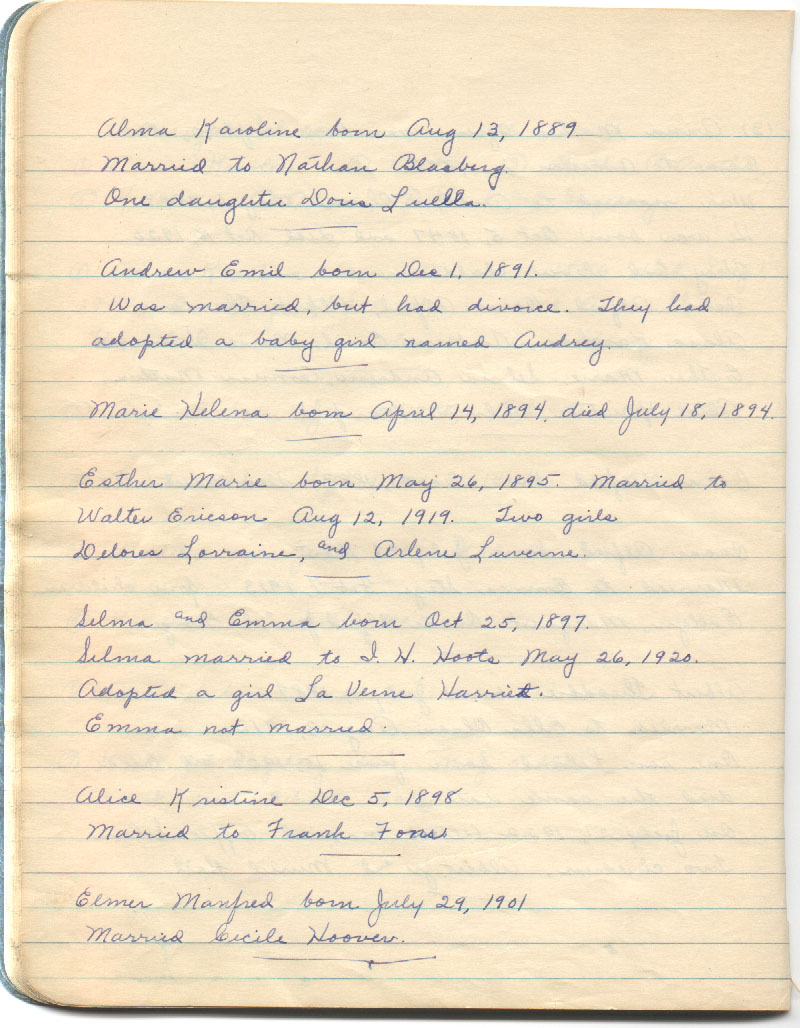 Alma Karoline born Aug 13, 1889
Married to Nathan Blasberg.
One daughter Doris Luella.
Andrew Emil born Dec 1, 1891.
Was married, but had divorce. They had
adopted a baby girl named Audrey.
Marie Helena born April 14, 1894, died July 18, 1894.
Esther Marie born May 26, 1895. Married to
Walter Ericson Aug 12, 1919. Two girls
Delores Lorraine, and Arlene Luverne.
Selma and Emma born Oct 25, 1897.
Selma married to I. H. Hoots May 26, 1920.
Adopted a girl La Verne Harriet.
Emma not married.
Alice Kristine Dec 5, 1898
Married to Frank Fons
Elmer Manfred born July 29, 1901
Married Cecile Hoover.